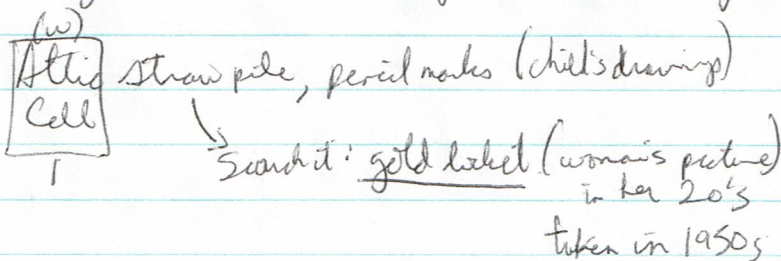 (w)
Attic straw pile, pencil marks (child's drawings)
Cell
Search it: gold locket (woman's picture)
in her 20's
taken in 1950s